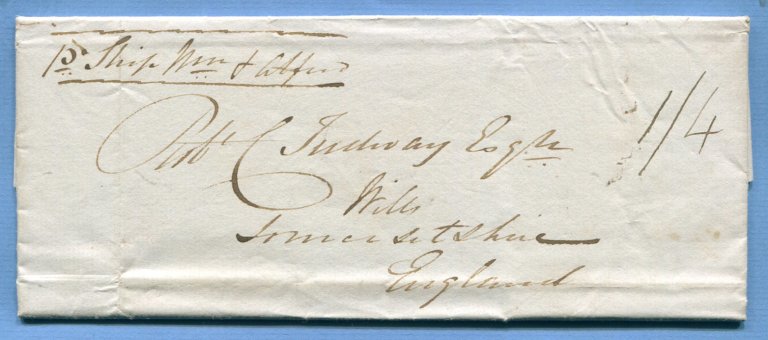 pr Ship Wm & Alfred
Robt C Tudway Esqre
1/4
Wells
Somersetshire
England